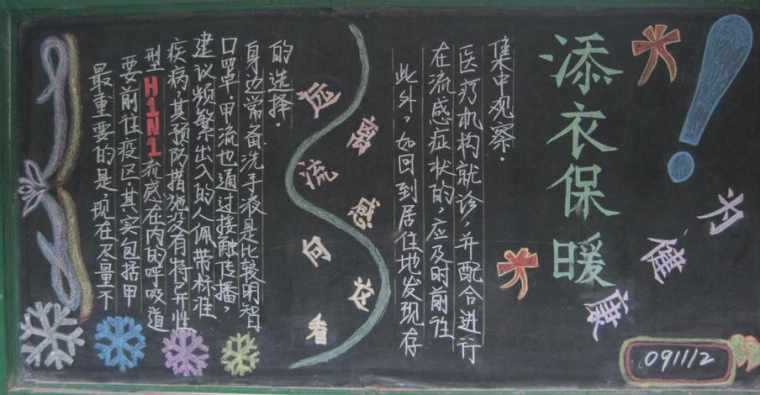 为健康
添衣保暖
此外，如回到居住地发现存
在流感症状的，应及时前往
医疗机构就诊，并配合进行
集中观察.
远离流感向左看
最重要的是现在尽量不
要前往疫区.其实包括甲
型H1N1流感在内的呼吸道
疾病.其预防措施没有特异性
建议频繁出入的人佩带标准
口罩.甲流也通过接触传播，
身边常备洗手液是比较明智
的选择.
091112